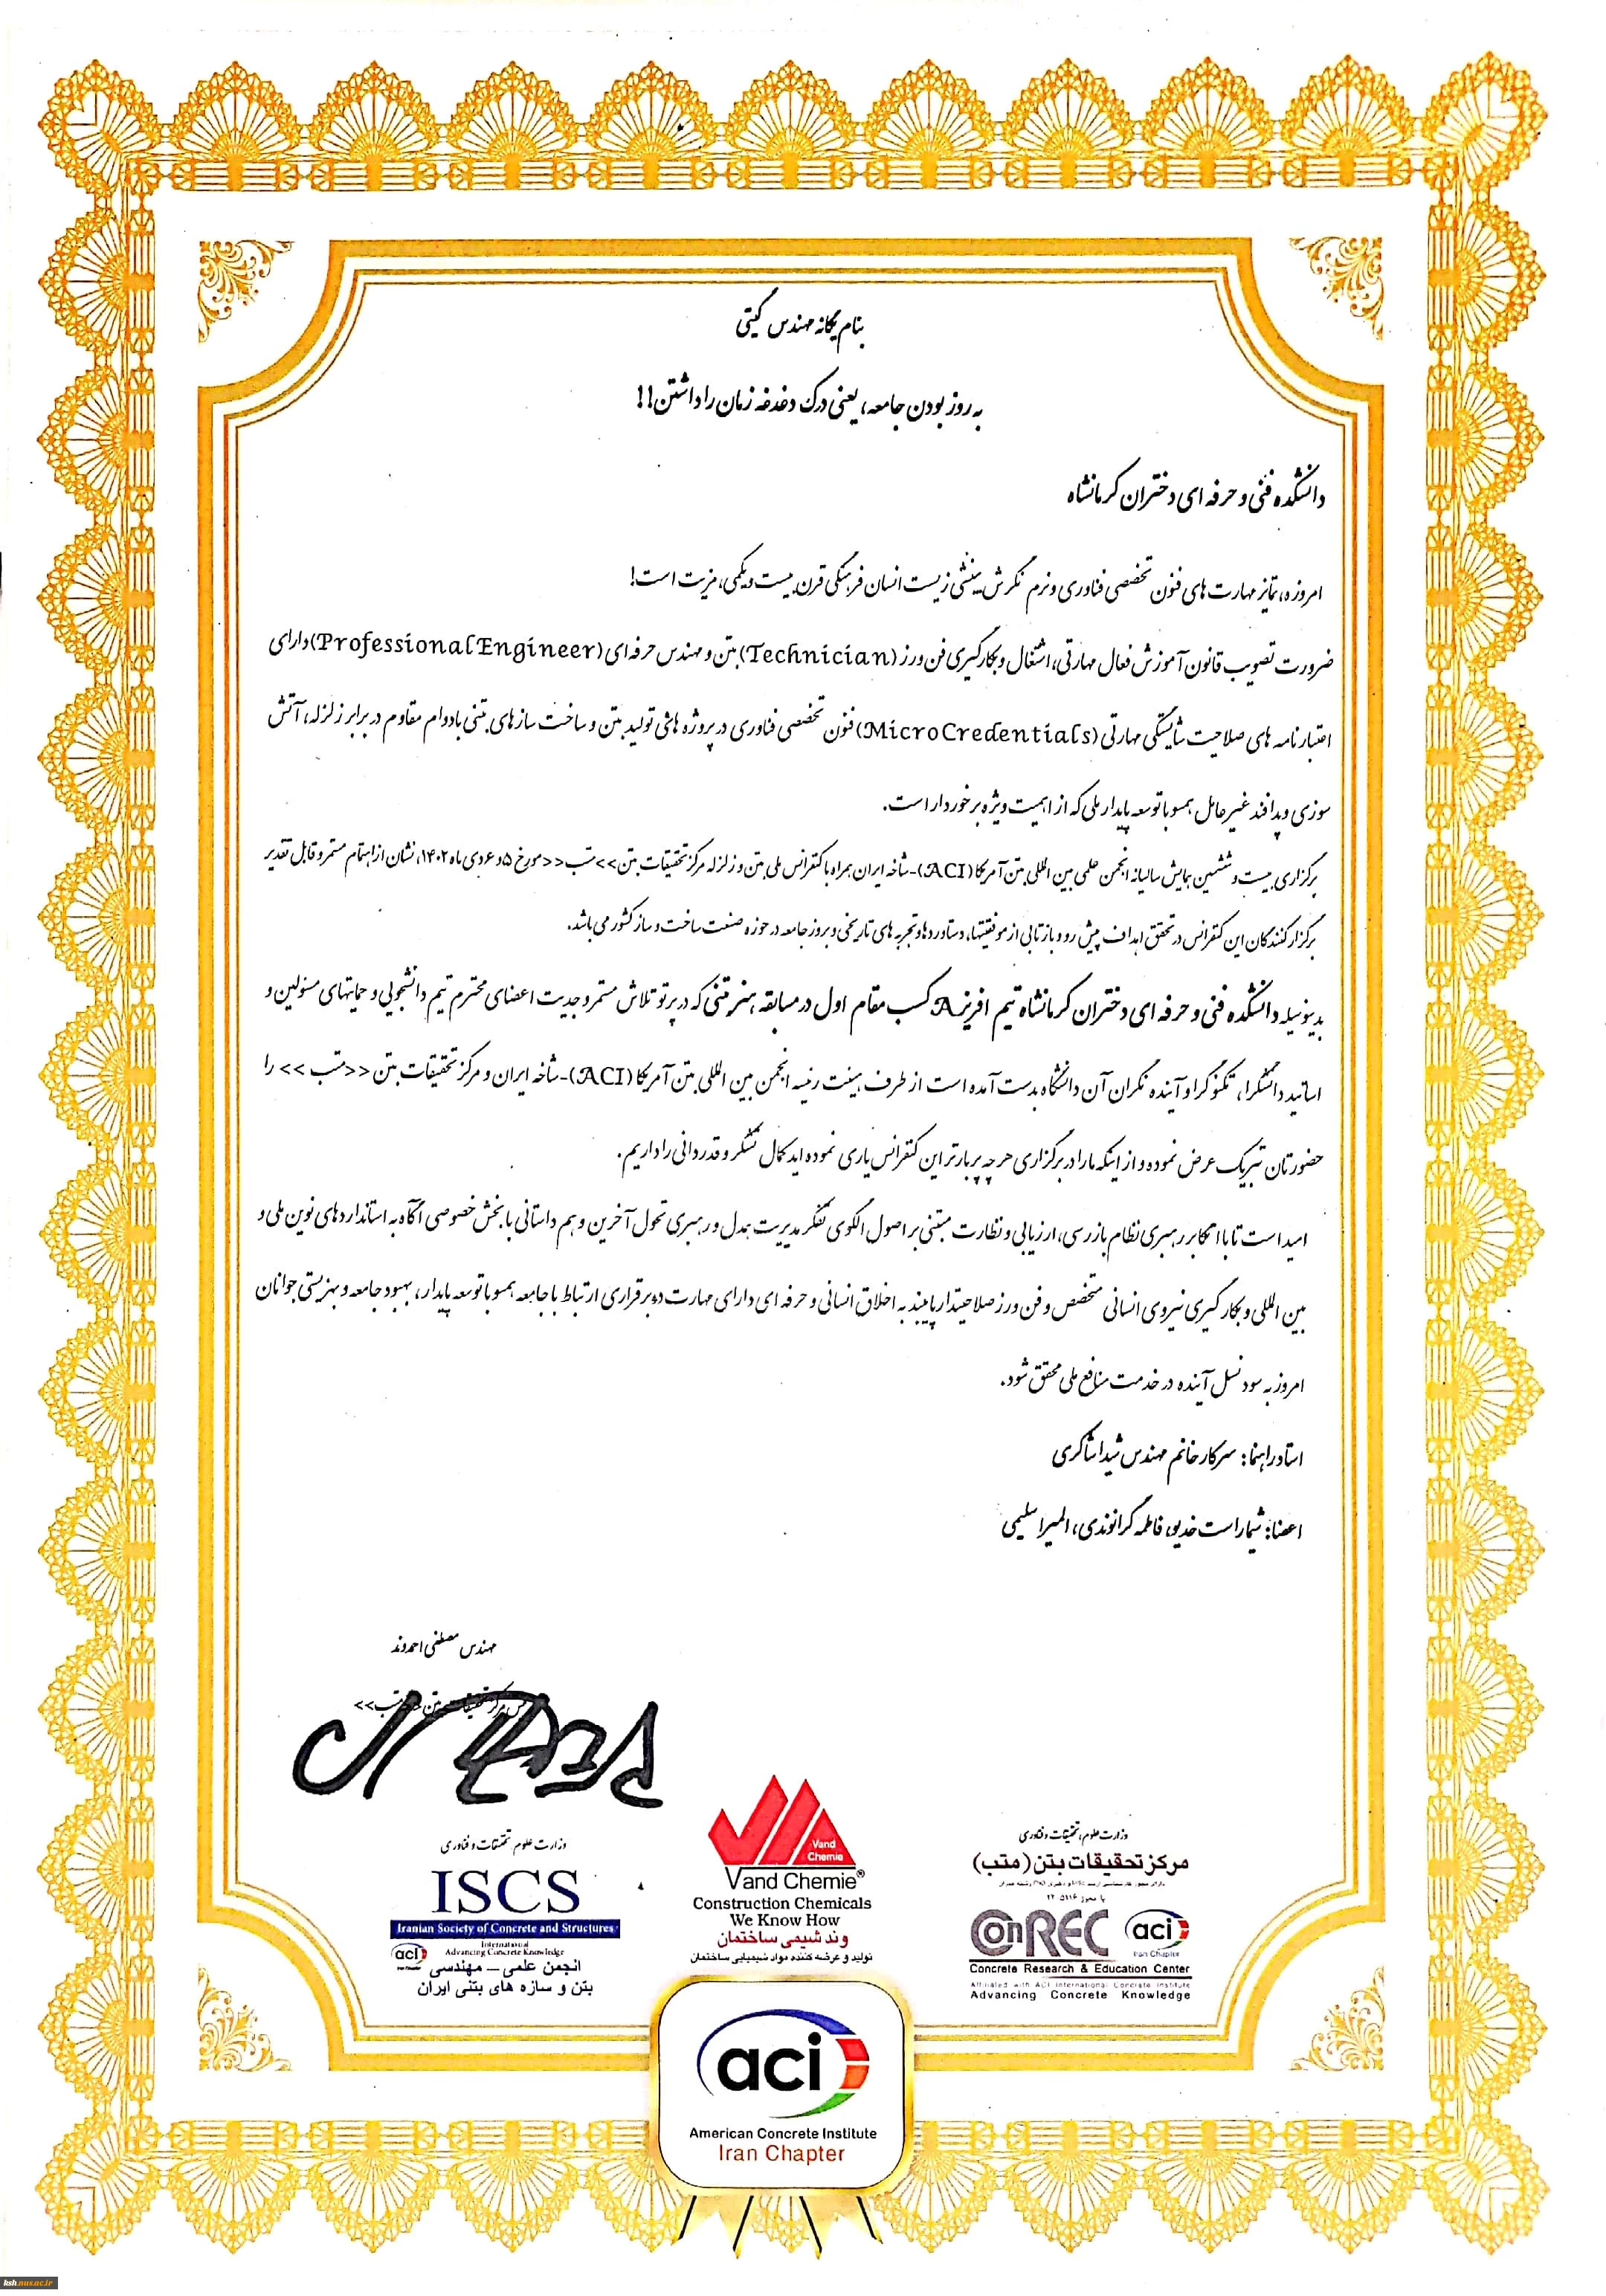 بنام یگانه مهندس گیتی
به روز بودن جامعه، یعنی درک دغدغه زمان را داشتن!!
دانشکده فنی و حرفه ای دختران کرمانشاه
امروزه، تمایز مهارت های فنون تخصصی فناوری و نرم نگرش بینشی زیست انسان فرهنگی قرن بیست و یکمی، مزیت است!
ضرورت تصویب قانون آموزش فعال مهارتی، اشتغال و بکارگیری فن ورز (Technician) بتن و مهندس حرفه ای (Professional Engineer) دارای
اعتبار نامه های صلاحیت شایستگی مهارتی (MicroCredentials) فنون تخصصی فناوری در پروژه هائی تولید بتن و ساخت سازهای بتنی با دوام مقاوم در برابر زلزله، آتش
سوزی و پدافند غیر عامل همسو با توسعه پایدار ملی که از اهمیت ویژه برخوردار است.
برگزاری بیست و ششمین همایش سالیانه انجمن علمی بین المللی بتن آمریکا (ACI)-شاخه ایران همراه با کنفرانس ملی بتن و زلزله مرکز تحقیقات بتن >>متب<< مورخ ۵ و ۶ دی ماه ۱۴۰۲، نشان از اهتمام مستمر و قابل تقدیر
برگزار کنندگان این کنفرانس در تحقق اهداف پیش رو و بازتابی از موفقیتها، دستاوردها و تجربه های تاریخی و بروز جامعه در حوزه صنعت ساخت و ساز کشور می باشد.
بدینوسیله دانشکده فنی و حرفه ای دختران کرمانشاه تیم افریز A کسب مقام اول در مسابقه هنر بتنی که در پرتو تلاش مستمر و جدیت اعضای محترم تیم دانشجویی و حمایتهای مسئولین و
اساتید دانشگرا، تکنوگرا و آینده نگران آن دانشگاه بدست آمده است از طرف هیئت رئیسه انجمن بین المللی بتن آمریکا (ACI)-شاخه ایران و مرکز تحقیقات بتن <<متب >> را
حضورتان تبریک عرض نموده و از اینکه ما را در برگزاری هر چه پربارتر این کنفرانس یاری نموده اید کمال تشکر و قدردانی را داریم.
امید است تا با اتکا بر رهبری نظام بازرسی، ارزیابی و نظارت مبتنی بر اصول الگوی تفکر مدیریت بدل و رهبری تحول آخرین و هم داستانی با بخش خصوصی آگاه به استانداردهای نوین ملی و
بین المللی و بکارگیری نیروی انسانی متخصص و فن ورز صلاحیتدار پایبند به اخلاق انسانی و حرفه ای دارای مهارت در برقراری ارتباط با جامعه همسو با توسعه پایدار، بهبود جامعه و بهزیستی جوانان
امروز به سود نسل آینده در خدمت منافع ملی محقق شود.
استاد راهنما: سرکار خانم مهندس شیدا شاکری
اعضا: شیما راست خدیو، فاطمه گرانوندی، المیرا سلیمی
مهندس مصطفی احمدوند
مرکز تحقیقات بتن متب>>
وزارت علوم تحقیقات و فناوری
ISCS
Iranian Society of Concrete and Structures
International
Advancing Concrete Knowledge
aci
Iran Chapter
انجمن علمی – مهندسی
بتن و سازه های بتنی ایران
Vand
Chemie
Vand Chemie®
Construction Chemicals
We Know How
وند شیمی ساختمان
تولید و عرضه کننده مواد شیمیایی ساختمان
وزارت علوم، تحقیقات و فناوری
مرکز تحقیقات بتن (متب)
ConREC
aci
Iran Chapter
Concrete Research & Education Center
Affiliated with ACI International Concrete Institute
Advancing Concrete Knowledge
aci
American Concrete Institute
Iran Chapter
ksh.nus.ac.ir